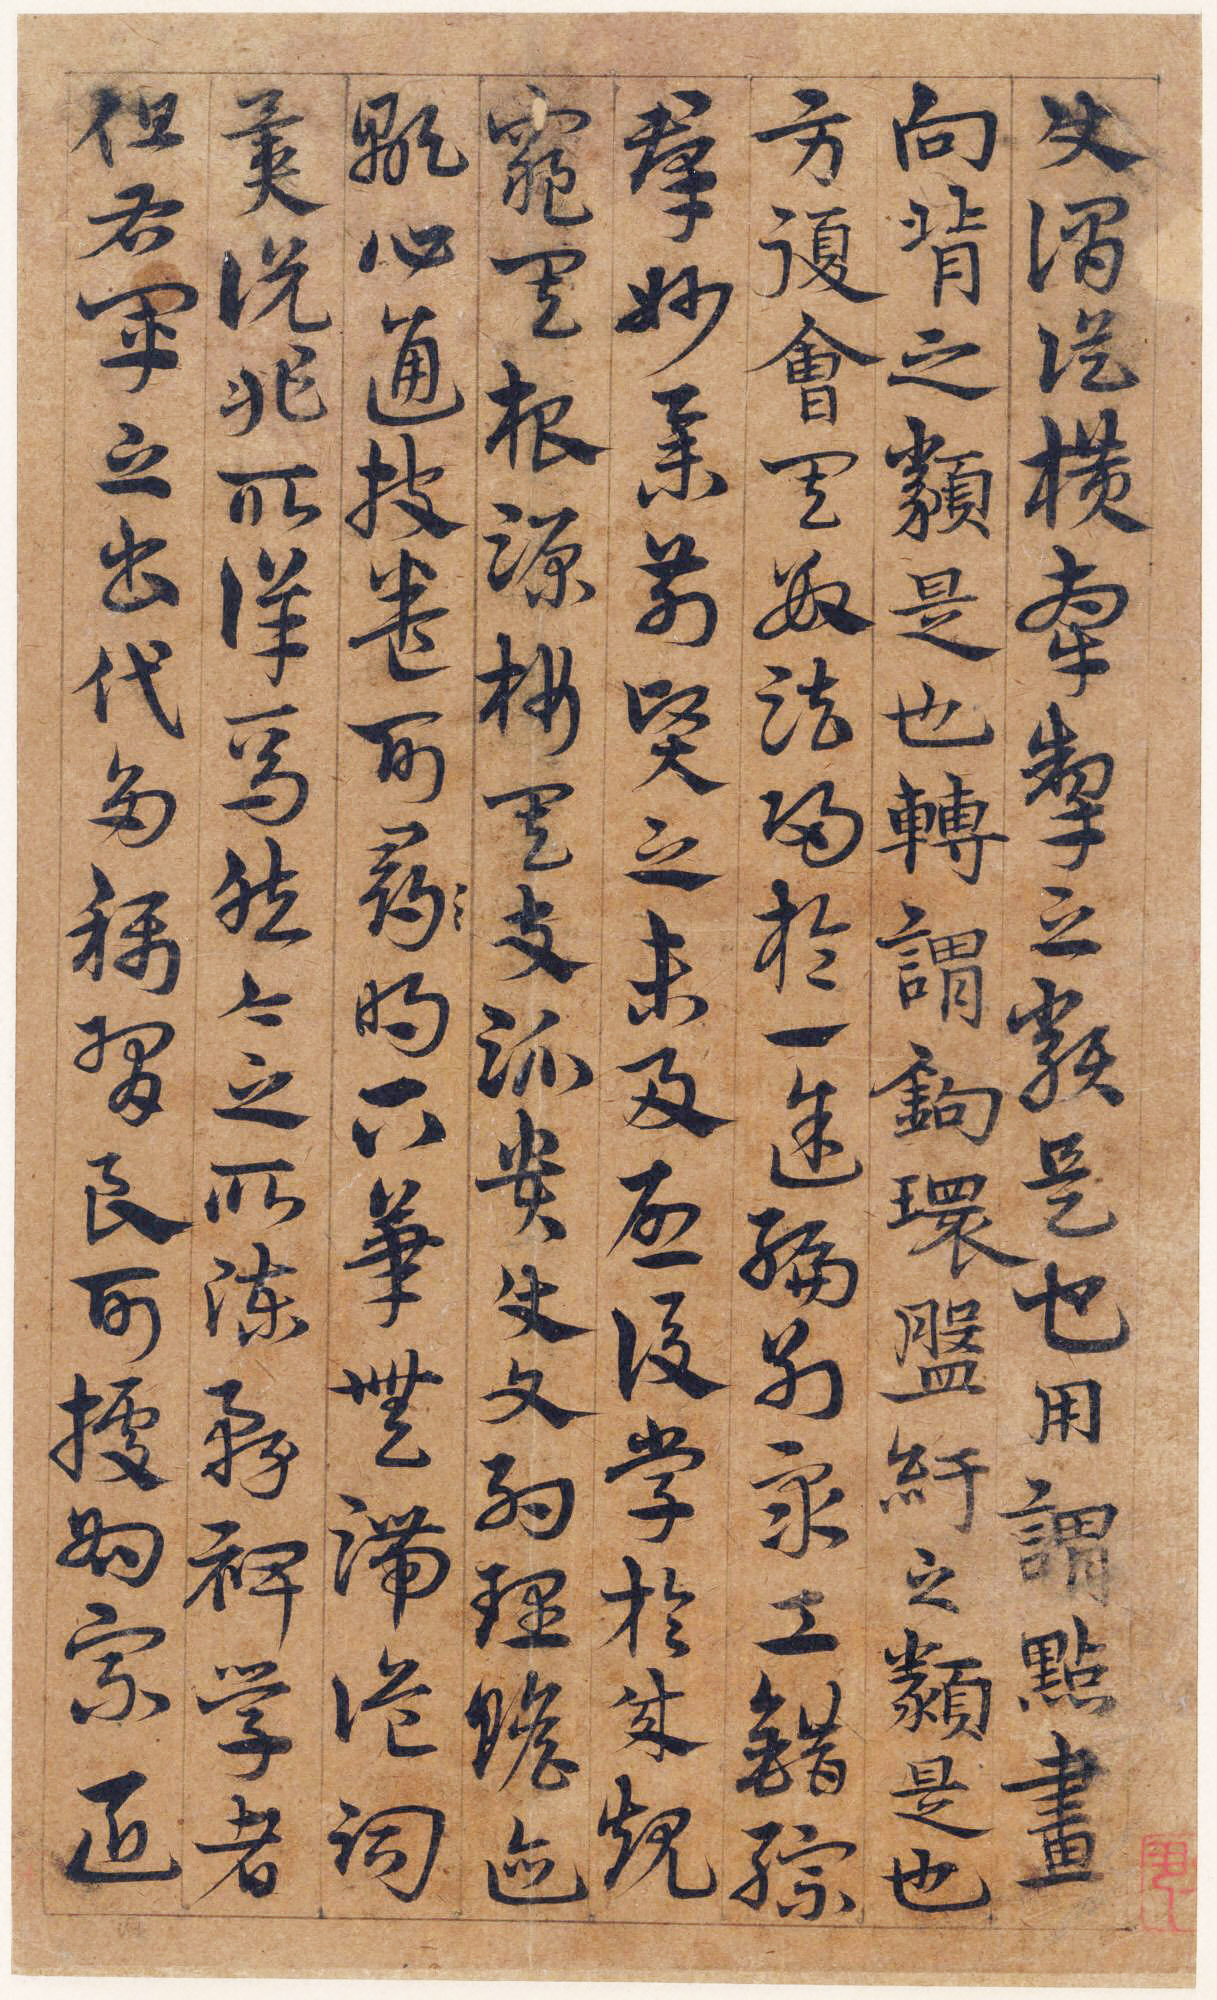 使謂從橫牽掣之類是也用謂點畫
向背之類是也轉謂鉤環盤紆之類是也
方復會其數法歸於一途編列眾工錯綜
群妙舉前賢之未及啟後學於成規
窺其根源析其支派貴使文約理贍迹
顯心通披卷可尋明下筆無滯詭詞
異說非所詳焉然今之所陳務裨學者
但右軍之書代多稱習良可據為宗匠